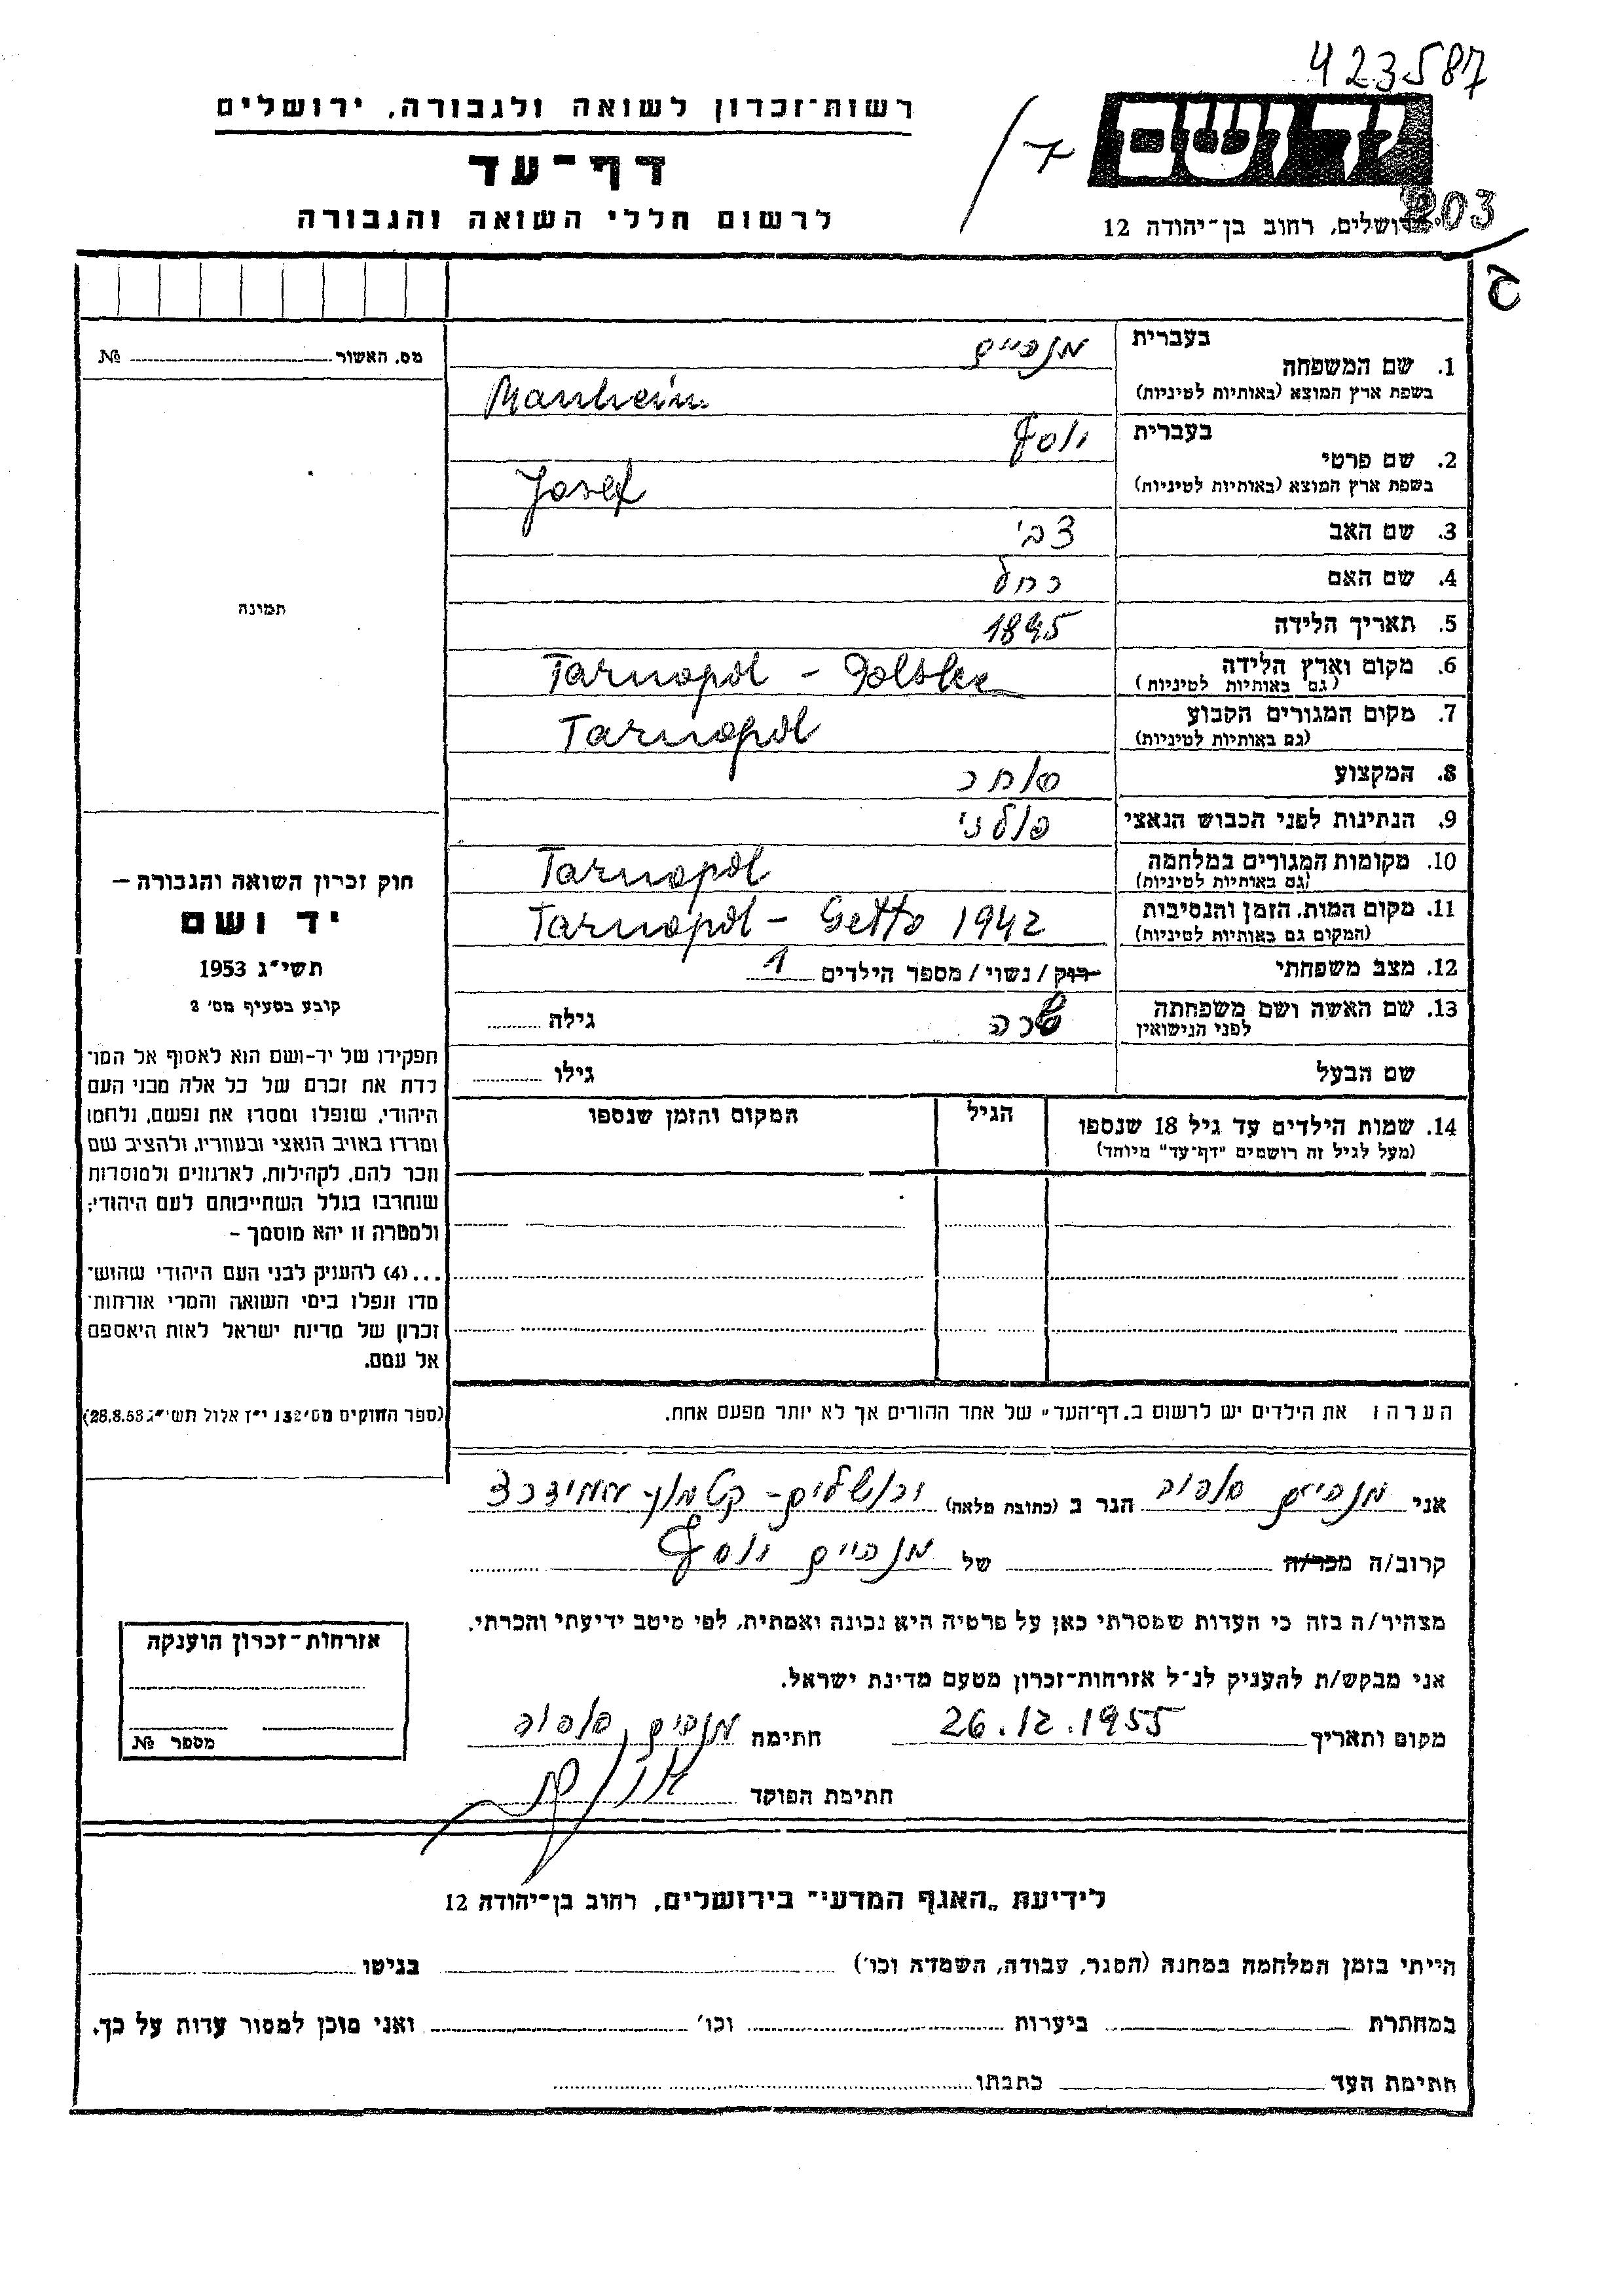 423587
רשות־זכרון לשואה ולגבורה, ירושלים
דף־עד
לרשום חללי השואה והגבורה
ירושלים, רחוב בן־יהודה 12
203
מס. האשור № 
בעברית
1. שם המשפחה
בשפת ארץ המוצא (באותיות לטיניות)
מנהיים
Manheim
בעברית
2. שם פרטי
בשפת ארץ המוצא (באותיות לטיניות)
יוסף
Josef
3. שם האב צבי
4. שם האם רחל
5. תאריך הלידה 1895
6. מקום וארץ הלידה Tarnopol - Polska
(גם באותיות לטיניות)
7. מקום המגורים הקבוע Tarnopol
(גם באותיות לטיניות)
8. המקצוע סוחר
9. הנתינות לפני הכבוש הנאצי פולני
10. מקומות המגורים במלחמה Tarnopol
(גם באותיות לטיניות)
11. מקום המות, הזמן והנסיבות Tarnopol - Getto 1942
(המקום גם באותיות לטיניות)
12. מצב משפחתי רוק / נשוי / מספר הילדים 1
13. שם האשה ושם משפחתה שרה גילה
לפני הנישואין
שם הבעל גילו
14. שמות הילדים עד גיל 18 שנספו הגיל המקום והזמן שנספו
(מעל לגיל זה רושמים "דף־עד" מיוחד)
תמונה
חוק זכרון השואה והגבורה —
יד ושם
תשי"ג 1953
קובע בסעיף מס' 2
תפקידו של יד-ושם הוא לאסוף אל המו־
לדת את זכרם של כל אלה מבני העם
היהודי, שנפלו ומסרו את נפשם, נלחמו
ומרדו באויב הנאצי ובעוזריו, ולהציב שם
וזכר להם, לקהילות, לארגונים ולמוסדות
שנחרבו בגלל השתייכותם לעם היהודי;
ולמטרה זו יהא מוסמך –
...(4) להעניק לבני העם היהודי שהוש־
מדו ונפלו בימי השואה והמרי אזרחות־
זכרון של מדינת ישראל לאות היאספם
אל עמם.
(ספר החוקים מס' 132 י"ז אלול תשי"ג 28.8.53)
הערה: את הילדים יש לרשום ב„דף־העד" של אחד ההורים אך לא יותר מפעם אחת.
אני מנהיים הגר ב (כתובת מלאה) ירושלים - קטמון
קרוב/ה מכר/ה של מנהיים יוסף
מצהיר/ה בזה כי העדות שמסרתי כאן על פרטיה היא נכונה ואמתית, לפי מיטב ידיעתי והכרתי.
אני מבקש/ת להעניק לנ"ל אזרחות־זכרון מטעם מדינת ישראל.
מקום ותאריך 26.12.1955 חתימה מנהיים
חתימת הפוקד
אזרחות־זכרון הוענקה
מספר №
לידיעת „האגף המדעי" בירושלים, רחוב בן־יהודה 12
הייתי בזמן המלחמה במחנה (הסגר, עבודה, השמדה וכו') בגיטו
במחתרת ביערות וכו' ואני מוכן למסור עדות על כך.
חתימת העד כתבתו